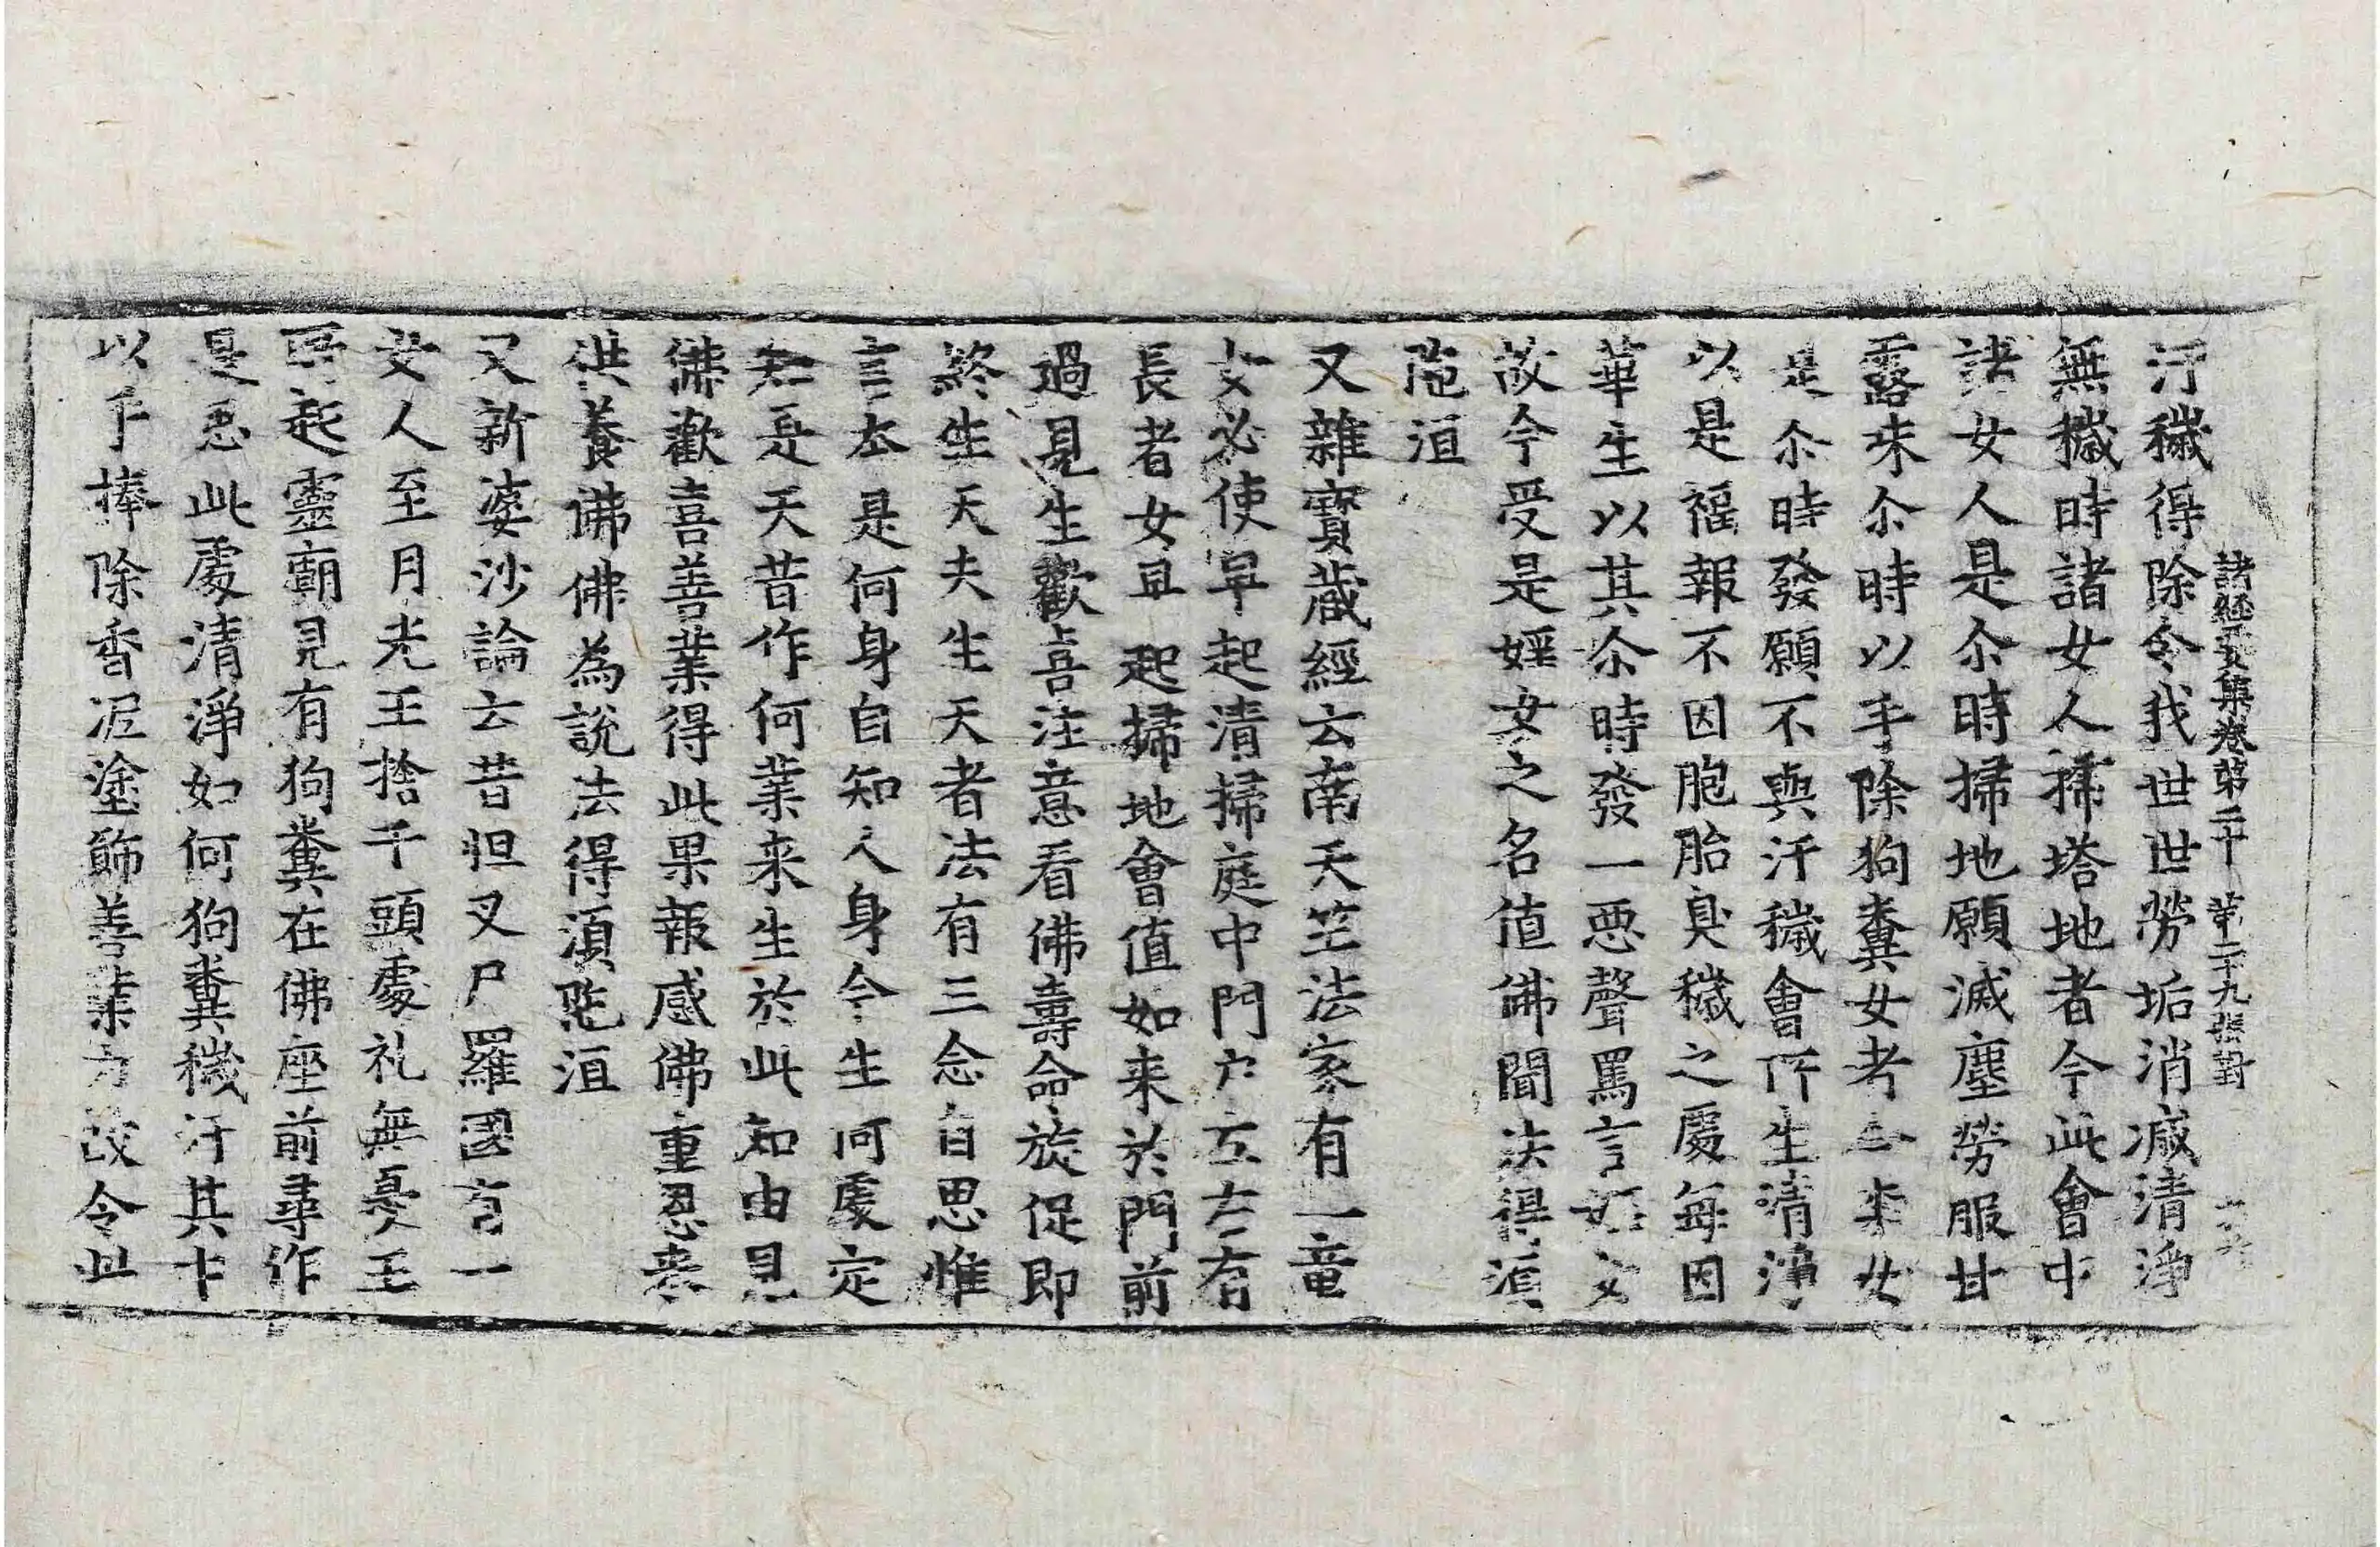 汙穢得除令我世世勞垢消滅清淨
諸經要集卷第二十 第二十九張 對
無穢時諸女人掃塔地者今此會中
諸女人是尒時掃地願滅塵勞服甘
露味尒時以手除狗糞女者今柰女
是尒時發願不與汙穢會所生清淨
以是福報不因胞胎臭穢之處每因
華生以其尒時發一惡聲罵言婬女
故今受是婬女之名値佛聞法得湏
陁洹
又雜寶蔵經云南天竺法家有一童
女必使早起清掃庭中門户左右有
長者女早起掃地會値如来於門前
過見生歡喜注意看佛壽命旋促即
終生天夫生天者法有三念自思惟
言本是何身自知人身今生何處定
知是天昔作何業来生於此知由見
佛歡喜善業得此果報感佛重恩来
供養佛佛為說法得湏陁洹
又新婆沙論云昔怛叉尸羅國有一
女人至月光王捨千頭處礼無憂王
所起靈廟見有狗糞在佛座前尋作
是思此處清淨如何狗糞穢汙其中
以手捧除香泥塗飾善業力故令此